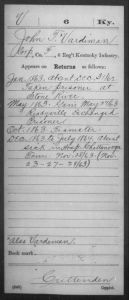 V 6 Ky.
John T. Vardiman
Corp, Co. F, 6 Reg't Kentucky Infantry.
Appears on
Returns as follows:
Jan 1863, Absent Dec 31/62
Taken prisoner at
Stone River
May 1863, Gain May 25/63
Exchanged
Prisoner
Oct. 1863
Dec. 1863 to July 1864, Absent
sick in Hosp. Chattanooga
Tenn. Nov. 25/63 (Nov.
23-27-25/63)
Alas Vardeman
Book mark:
Crittenden